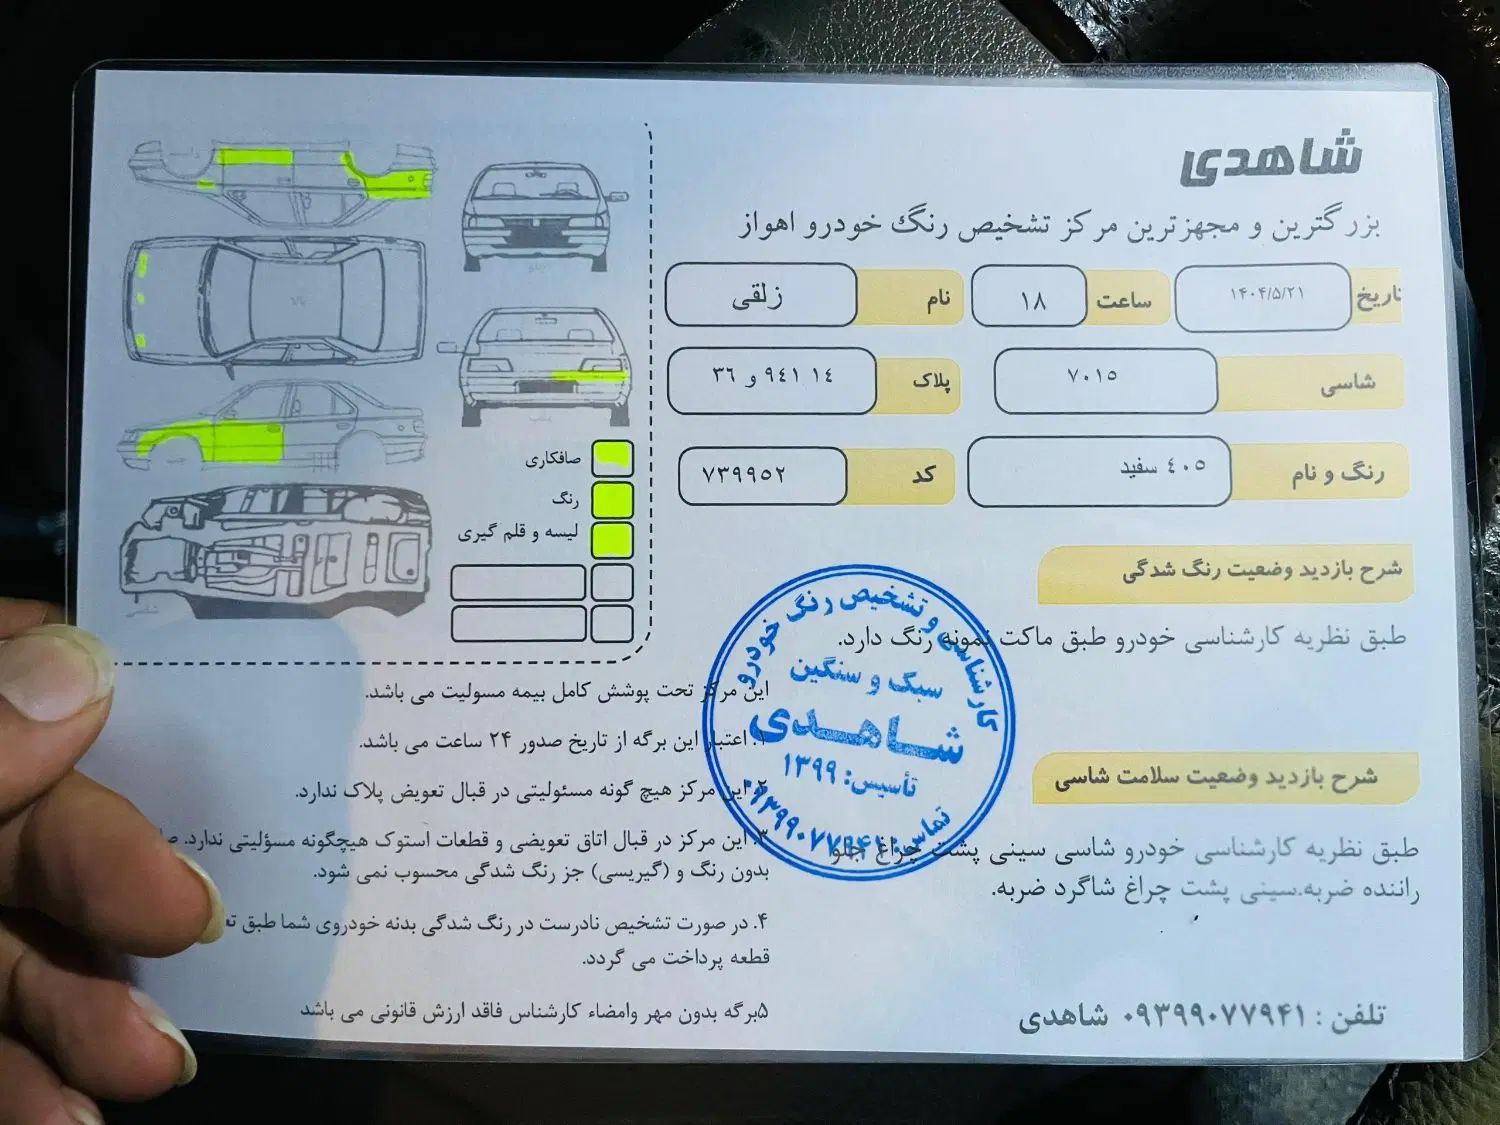 شاهدی
بزرگترین و مجهزترین مرکز تشخیص رنگ خودرو اهواز
تاریخ ۱۴۰۴/۵/۲۱ ساعت ۱۸ نام زلقی
شاسی ۷۰۱۵ پلاک ١٤ ٩٤١ و ٣٦
رنگ و نام ٤٠٥ سفید کد ۷۳۹۹۵۲
شرح بازدید وضعیت رنگ شدگی
طبق نظریه کارشناسی خودرو طبق ماکت نمونه رنگ دارد.
شرح بازدید وضعیت سلامت شاسی
طبق نظریه کارشناسی خودرو شاسی سینی پشت چراغ جلو
راننده ضربه.سینی پشت چراغ شاگرد ضربه.
تلفن : ۰۹۳۹۹۰۷۷۹۴۱ شاهدی
جلو
صافکاری
رنگ
لیسه و قلم گیری
این مرکز تحت پوشش کامل بیمه مسولیت می باشد.
۱. اعتبار این برگه از تاریخ صدور ۲۴ ساعت می باشد.
۲. این مرکز هیچ گونه مسئولیتی در قبال تعویض پلاک ندارد.
۳. این مرکز در قبال اتاق تعویضی و قطعات استوک هیچگونه مسؤلیتی ندارد.
بدون رنگ و (گیریسی) جز رنگ شدگی محسوب نمی شود.
۴. در صورت تشخیص نادرست در رنگ شدگی بدنه خودروی شما طبق
قطعه پرداخت می گردد.
۵برگه بدون مهر وامضاء کارشناس فاقد ارزش قانونی می باشد
کارشناسی و تشخیص رنگ خودرو
سبک و سنگین
شاهدی
تأسیس: ۱۳۹۹
تماس: ۰۹۳۹۹۰۷۷۹۴۱